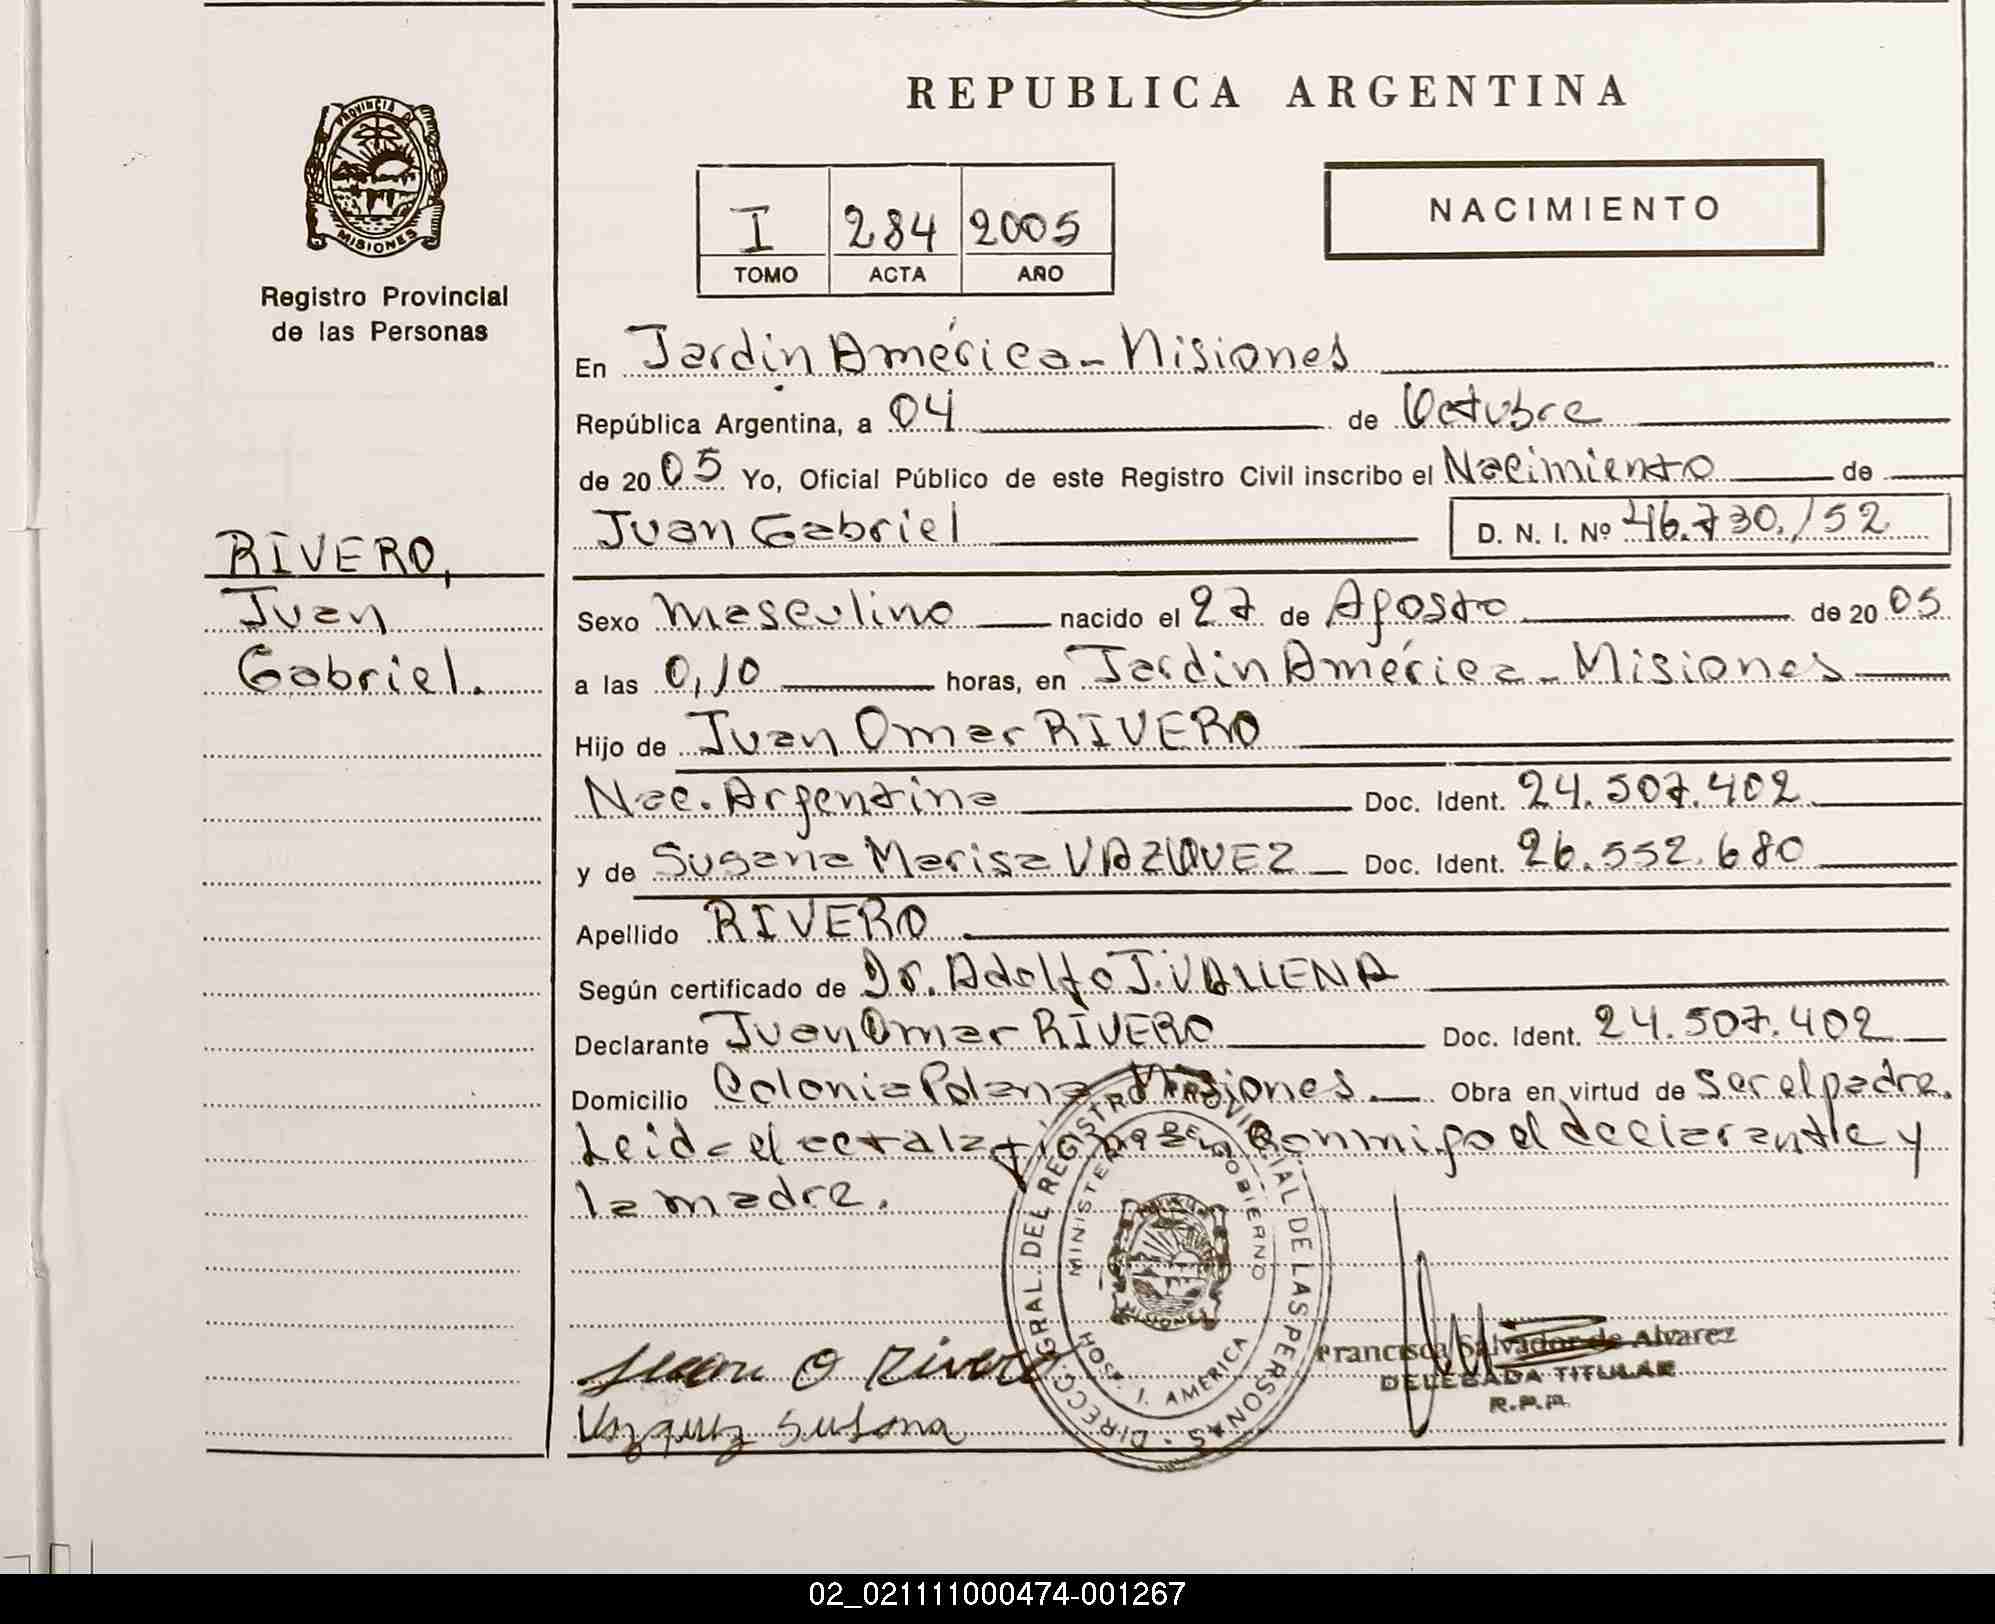 REPUBLICA ARGENTINA
PROVINCIA DE
MISIONES
Registro Provincial
de las Personas
I 284 2005
TOMO ACTA AÑO
NACIMIENTO
En Jardín América - Misiones
República Argentina, a 04 de Octubre
de 2005 Yo, Oficial Público de este Registro Civil inscribo el Nacimiento de
Juan Gabriel D. N. I. Nº 46.730.152
RIVERO,
Juan
Gabriel.
Sexo Masculino nacido el 27 de Agosto de 2005
a las 0,10 horas, en Jardin América - Misiones
Hijo de Juan Omar RIVERO
Nac. Argentina Doc. Ident. 24.507.402
y de Susana Marisa VAZQUEZ Doc. Ident. 26.552.680
Apellido RIVERO
Según certificado de Dr. Adolfo J. VALLENA
Declarante Juan Omar RIVERO Doc. Ident. 24.507.402
Domicilio Colonia Polana Misiones. Obra en virtud de ser el padre.
Leida el acta la firman Conmigo el declarante y
la madre.
DIRECC. GRAL. DEL REGISTRO PROVINCIAL DE LAS PERSONAS
MINISTERIO DE GOBIERNO
MISIONES
HOSP. J. AMERICA
Juan O Rivero
Vazquez Susana
Francisca Salvador de Alvarez
DELEGADA TITULAR
R.P.P.
02_021111000474-001267